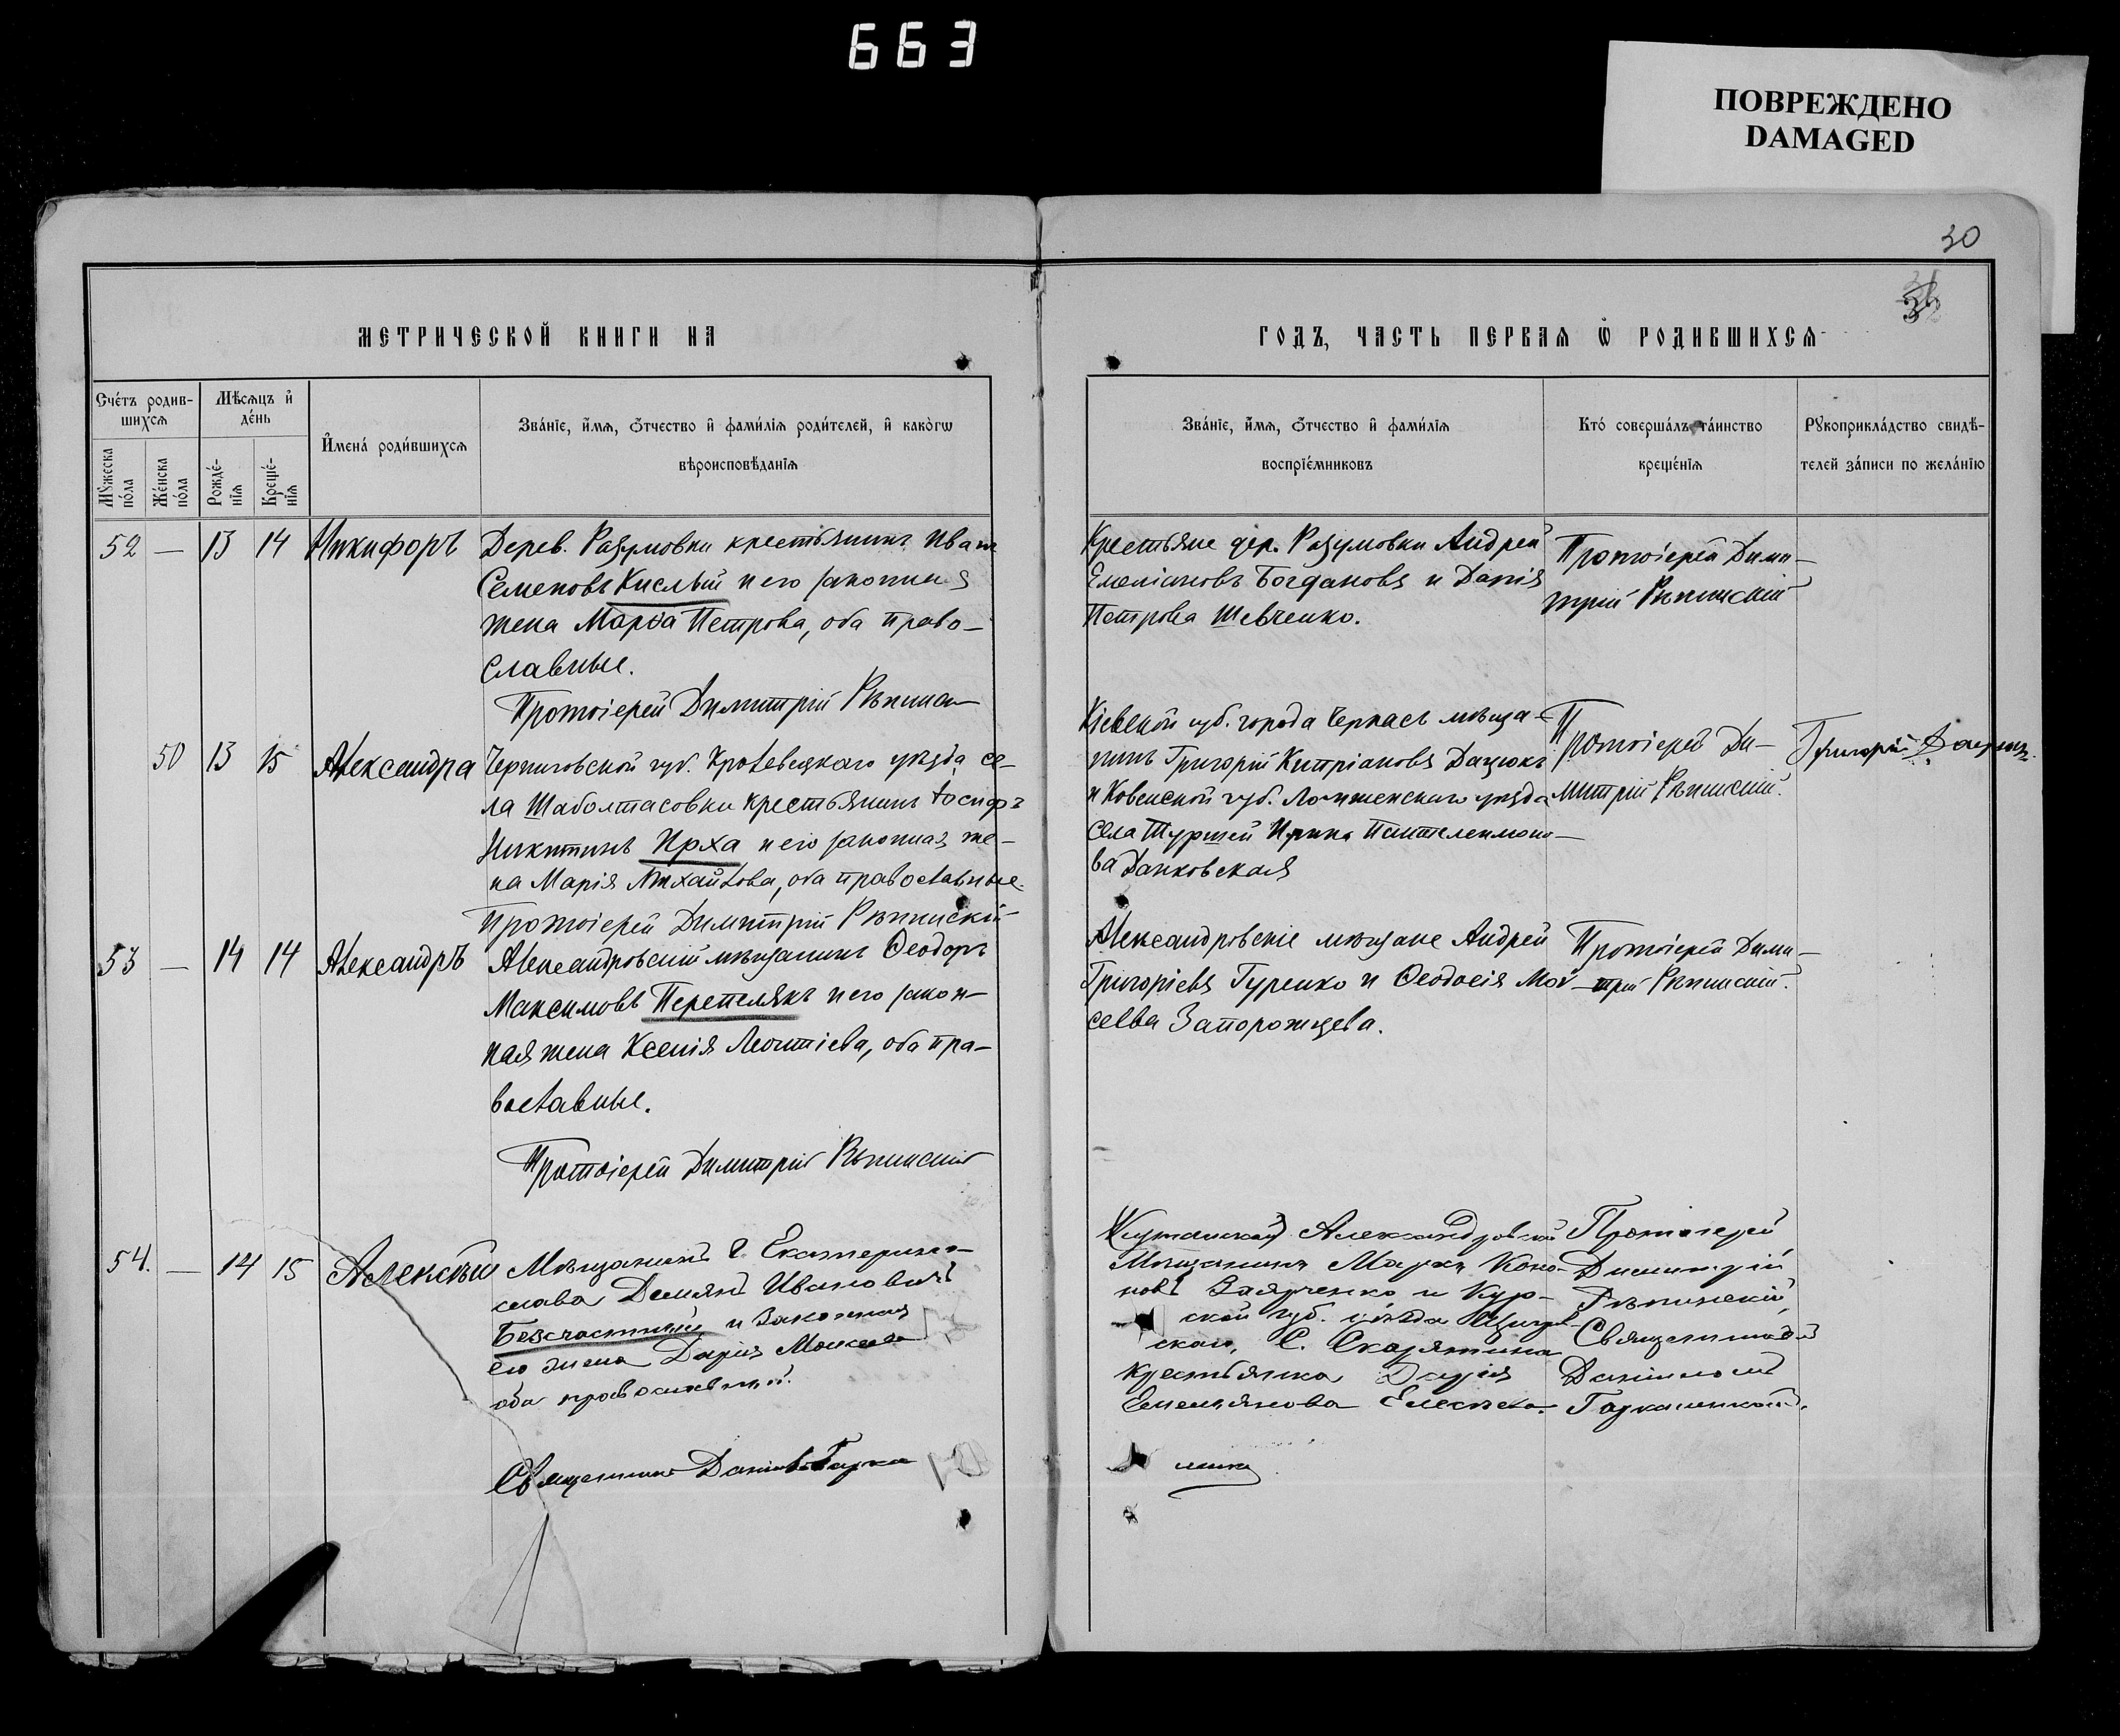 663
ПОВРЕЖДЕНО
DAMAGED
30
МЕТРИЧЕСКОЙ КНИГИ НА
ГОДЪ, ЧАСТЬ ПЕРВАЯ Ѡ РОДИВШИХСѦ
Сче́тъ родив-
шихсѧ
Мѣсѧцъ и҆
де́нь
Мꙋ́жеска
по́ла
Же́нска
по́ла
Рожде́-
нїѧ
Креще́-
нїѧ
И҆мена̀ роди́вшихсѧ
Зва́нїе, и҆́мѧ, ѻ҆́тчество и҆ фами́лїѧ роди́телей, и҆ како́гѡ
вѣроисповѣ́данїѧ
Зва́нїе, и҆́мѧ, ѻ҆́тчество и҆ фами́лїѧ
воспрїе́мниковъ
Кто́ соверша́лъ та́инство
креще́нїѧ
Рꙋкоприкла́дство свидѣ́-
телей за́писи по жела́нїю
52 — 13 14 Никифоръ
Дерев. Разумовки крестьянинъ Иванъ
Семеновъ Кислый и его законная
жена Марѳа Петрова, оба право-
славные.
Протоіерей Димитрій Рѣпинскій
Крестьяне дер. Разумовки Андрей
Емеліановъ Богдановъ и Дарія
Петрова Шевченко.
Протоіерей Дими-
трій Рѣпинскій
50 13 15 Александра
Черниговской губ. Кролевецкаго уѣзда, се-
ла Шаболтасовки крестьянинъ Іосифъ
Никитинъ Ирха и его законная же-
на Марія Михайлова, оба православные.
Протоіерей Димитрій Рѣпинскій
Кіевской губ. города Черкасъ мѣща-
нинъ Григорій Кипріановъ Дацюкъ
и Ковенской губ. уѣзда
села Ирина Пантелеимоно-
ва Данковская
Протоіерей Ди-
митрій Рѣпинскій.
Григорій
53 — 14 14 Александръ
Александровскій мѣщанинъ Ѳеодоръ
Максимовъ Перепелякъ и его закон-
ная жена Ксенія Леонтіева, оба пра-
вославные.
Протоіерей Димитрій Рѣпинскій
Александровскіе мѣщане Андрей
Григоріевъ Гуренко и Ѳеодосія Мои-
сеева Запорожцева.
Протоіерей Дими-
трій Рѣпинскій.
54. — 14 15 Алексѣй
Мѣщанинъ г. Екатерино-
слава Демянъ Ивановичъ
Безсчастный и законная
его жена Дарія Моисеева
оба православный.
Священникъ Даніилъ Гарка
Александровскій
Мѣщанинъ Марка Коно-
новъ и Кур-
ской губ. уѣзда Щигров-
скаго, С. Скарятина
крестьянка Дарія
Емельянова
Протоіерей
Димитрій
Рѣпинскій,
Священникъ
Даніиломъ